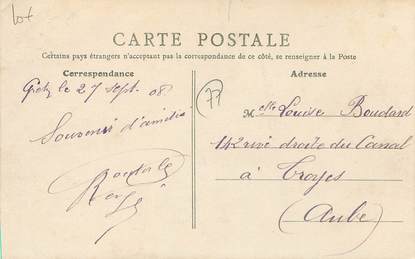 Lot
CARTE POSTALE
Certains pays étrangers n'acceptant pas la correspondance de ce côté, se renseigner à la Poste
Correspondance
Adresse
Gretz le 27 Sept. 08
Souvenir d'amitié
77
Melle Louise Boudard
142 rive droite du Canal
à Troyes
(Aube)